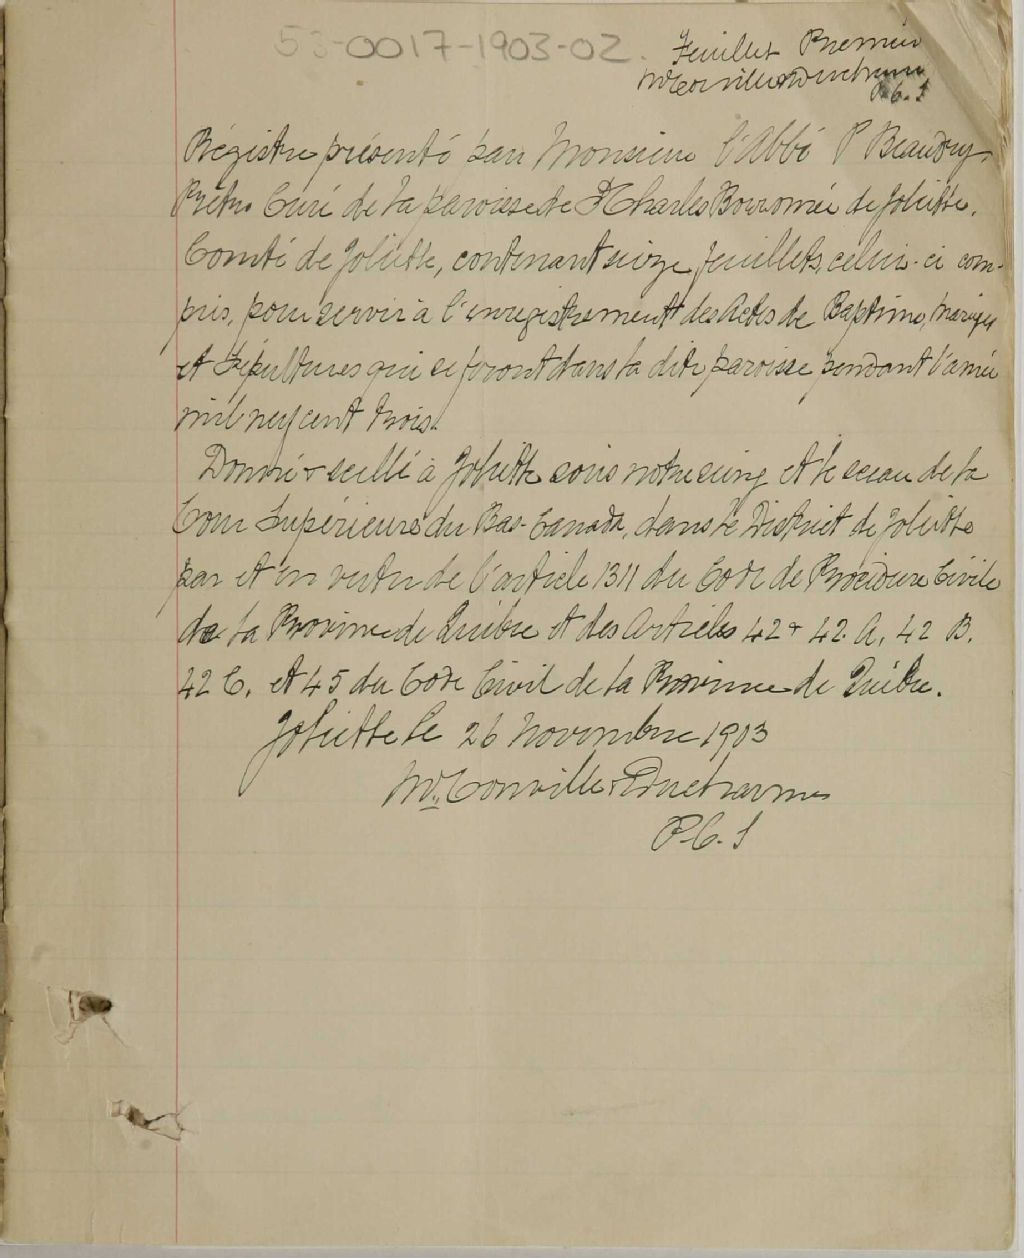 53-0017-1903-02
Feuillet Premier
McConville & Ducharme
P.C.S
Régistre présenté par Monsieur l'Abbé P Beaudry,
Prêtre Curé de la paroisse de St Charles Borromée de Joliette,
Comté de Joliette, contenant seize feuillets, celui-ci com-
pris, pour servir à l'enregistrement des actes de Baptême, Mariages
et Sépultures qui se feront dans la dite paroisse pendant l'année
mil neuf cent trois.
Donné & scellé à Joliette sous notre seing et le sceau de la
Cour Supérieure du Bas-Canada, dans le District de Joliette
par et en vertu de l'article 1311 du Code de Procédure Civile
de la Province de Québec et des Articles 42 & 42. A, 42 B.
42 C. et 45 du Code Civil de la Province de Québec.
Joliette le 26 Novembre 1903
McConville & Ducharme
P.C.S